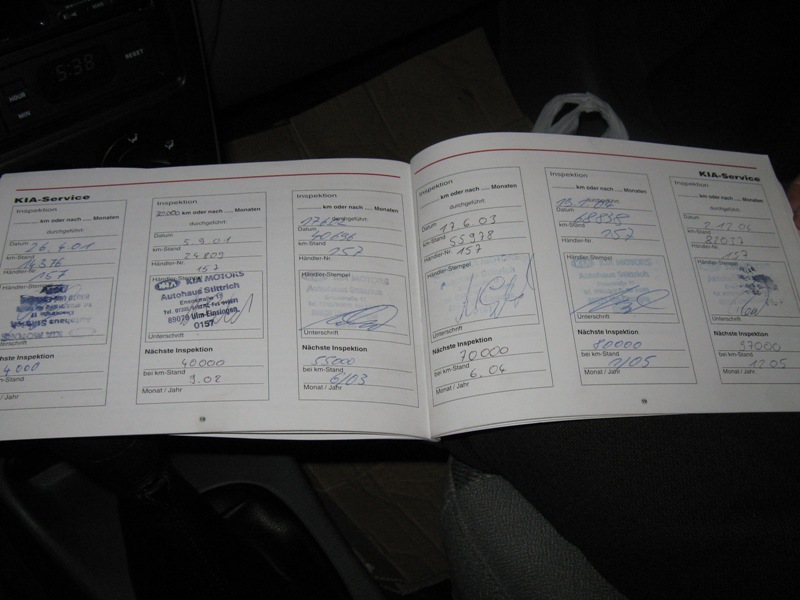 5:38
RESET
HOUR
MIN
KIA-Service
Inspektion
km oder nach ..... Monaten
durchgeführt:
Datum
26.4.01
km-Stand
14376
Händler-Nr.
157
Händler-Stempel
Nächste Inspektion
bei km-Stand
Monat / Jahr
Inspektion
km oder nach ..... Monaten
durchgeführt:
Datum
5.9.01
km-Stand
24809
Händler-Nr.
157
KIA MOTORS
Autohaus Stittrich
89079 Ulm-Einsingen
0157
Unterschrift
Nächste Inspektion
40000
bei km-Stand
9.02
Monat / Jahr
Inspektion
km oder nach ..... Monaten
durchgeführt:
Datum
km-Stand
Händler-Nr.
157
Händler-Stempel
Unterschrift
Nächste Inspektion
55000
bei km-Stand
6/03
Monat / Jahr
18
Inspektion
km oder nach ..... Monaten
durchgeführt:
Datum
17.6.03
km-Stand
55978
Händler-Nr.
157
Händler-Stempel
Unterschrift
Nächste Inspektion
70000
bei km-Stand
6.04
Monat / Jahr
Inspektion
km oder nach ..... Monaten
durchgeführt:
Datum
km-Stand
68838
Händler-Nr.
157
Händler-Stempel
Autohaus Stittrich
Unterschrift
Nächste Inspektion
80000
bei km-Stand
Monat / Jahr
19
KIA-Service
Inspektion
km oder nach ..... Monaten
durchgeführt:
Datum
km-Stand
Händler-Nr.
157
Händler-Stempel
Unterschrift
Nächste Inspektion
97000
bei km-Stand
12.05
Monat / Jahr